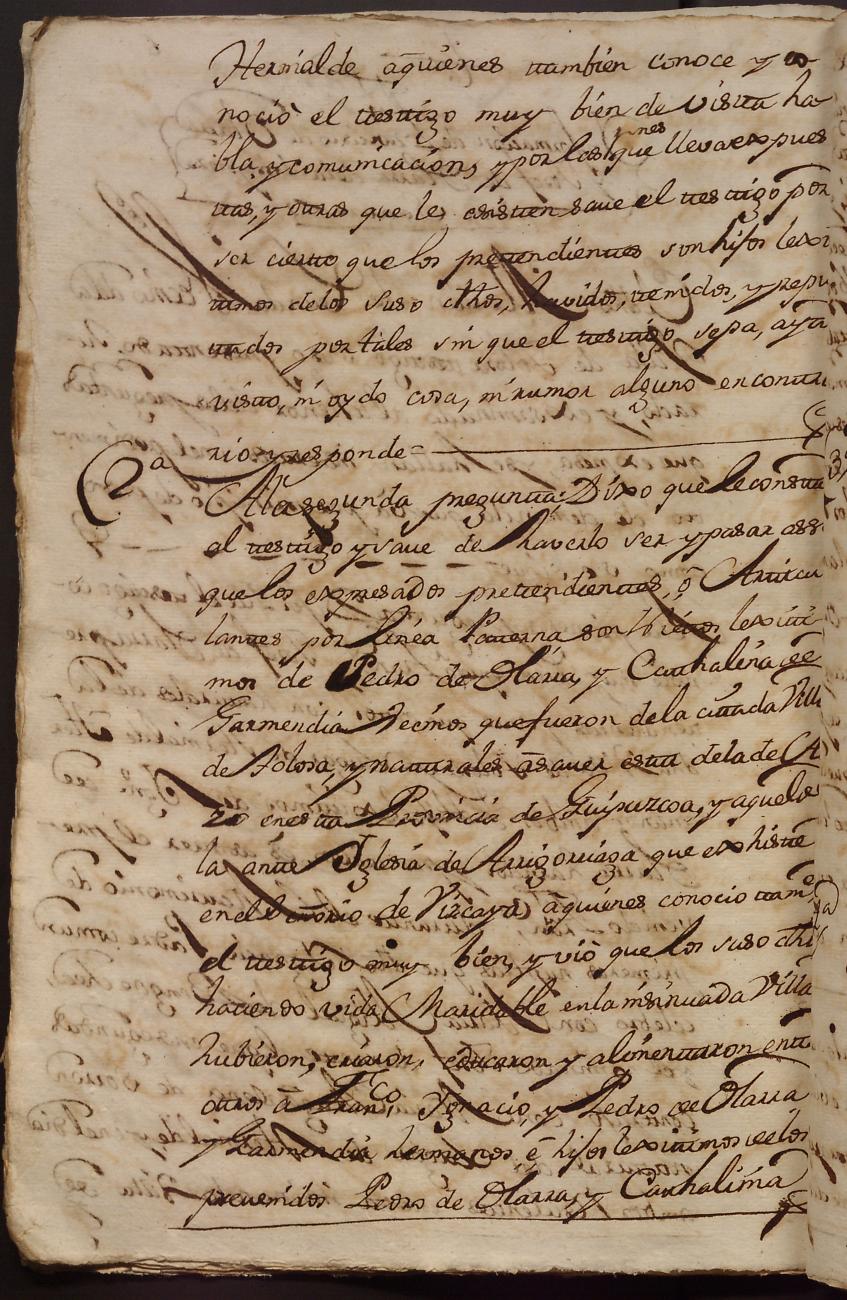 Hermalde aquienes ttambien conoce y co-
nociò el ttesttigo muy bien de vistta ha-
bla, y comunicacion, y por las rasones que lleva expues
ttas, y ottras que le asistten save el ttesttigo por
ser ciertto que los prettendienttes son hijos lexi
ttimos delos suso dthos, havidos, ttenidos, y repu
ttados por tales sin que el ttesttigo sepa, aya
vistto, ni oydo cosa, ni rumor alguno en conttra
rio y responde=
2ª Ala segunda preguntta: Dixo que le constta
al ttesttigo y save de haverlo ser y pasar assi
que los expresados prettendienttes, ô Artticu
lanttes por linea Patterna son Niettos lexitti
mos de Pedro de Olarra, y Catthalina de
Garmendia Vecinos que fueron de la cittada Villa
de Tolosa, y natturales â saver estta dela de
en estta Provincia de Guipuzcoa, y aquel de
la Antte Iglesia de Arrigorriaga que exhistte
en el Señorio de Vizcaya) aquienes conocio ttamⁿ
el ttesttigo muy bien, y viò que los suso dthos
haciendo vida Maridable en la insinuada Villa
hubieron, criaron, educaron y alimenttaron entt
ottros â Franᶜᵒ, Ignacio, y Pedro de Olarra
y Garmendia hermanos, ê hijos lexittimos de los
prevenidos Pedro de Olarra, y Catthalina